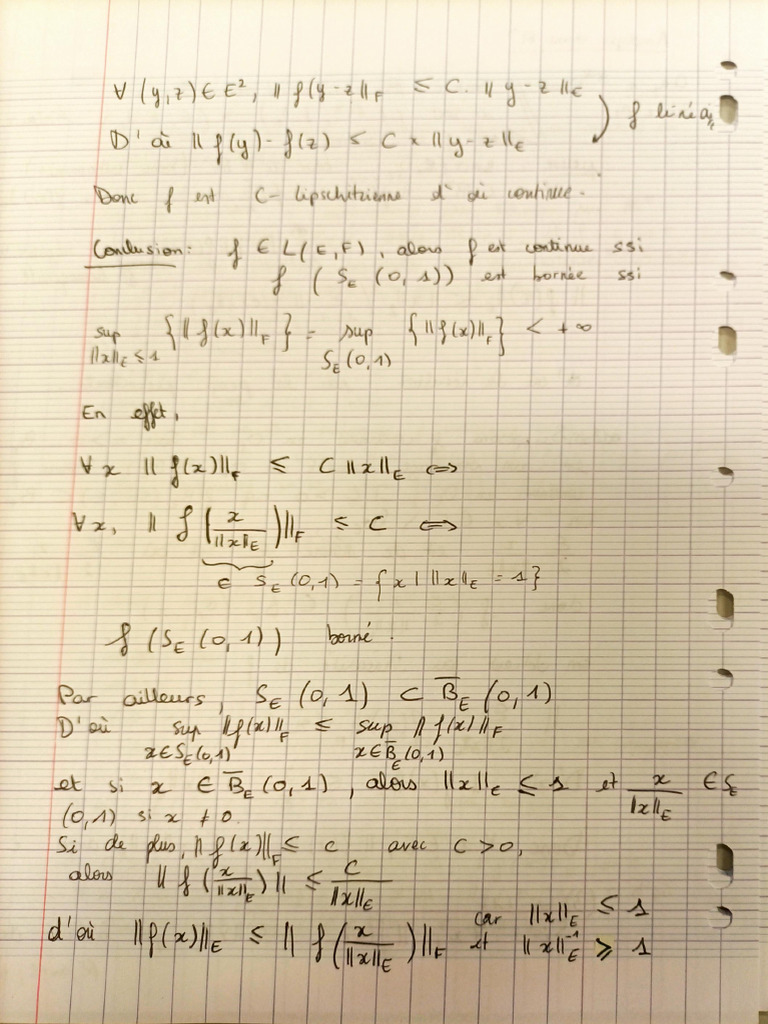 ∀ (y,z) ∈ E², || f(y-z ||_F ≤ C. || y-z ||_E
f linéa
D'où || f(y) - f(z) ≤ C × || y-z ||_E
Donc f est C-lipschitzienne d'où continue.
Conclusion: f ∈ L(E,F), alors f est continue ssi
f (S_E (0,1)) est bornée ssi
sup_{||x||_E ≤ 1} {|| f(x) ||_F} = sup_{S_E(0,1)} {|| f(x) ||_F} < +∞
En effet,
∀x || f(x) ||_F ≤ C ||x||_E ⟺
∀x, || f (x/||x||_E) ||_F ≤ C ⟺
∈ S_E (0,1) = {x | ||x||_E = 1}
f (S_E (0,1)) borné.
Par ailleurs, S_E (0,1) ⊂ B̅_E (0,1)
D'où sup_{x∈S_E(0,1)} ||f(x)||_F ≤ sup_{x∈B̅_E(0,1)} || f(x) ||_F
et si x ∈ B̅_E (0,1), alors ||x||_E ≤ 1 et x/||x||_E ∈ S_E
(0,1) si x ≠ 0.
Si de plus, || f(x) ||_F ≤ c avec C > 0,
alors || f (x/||x||_E) || ≤ C/||x||_E
d'où ||f(x)||_E ≤ || f(x/||x||_E) ||_F car ||x||_E ≤ 1
et ||x||_E^{-1} ≥ 1